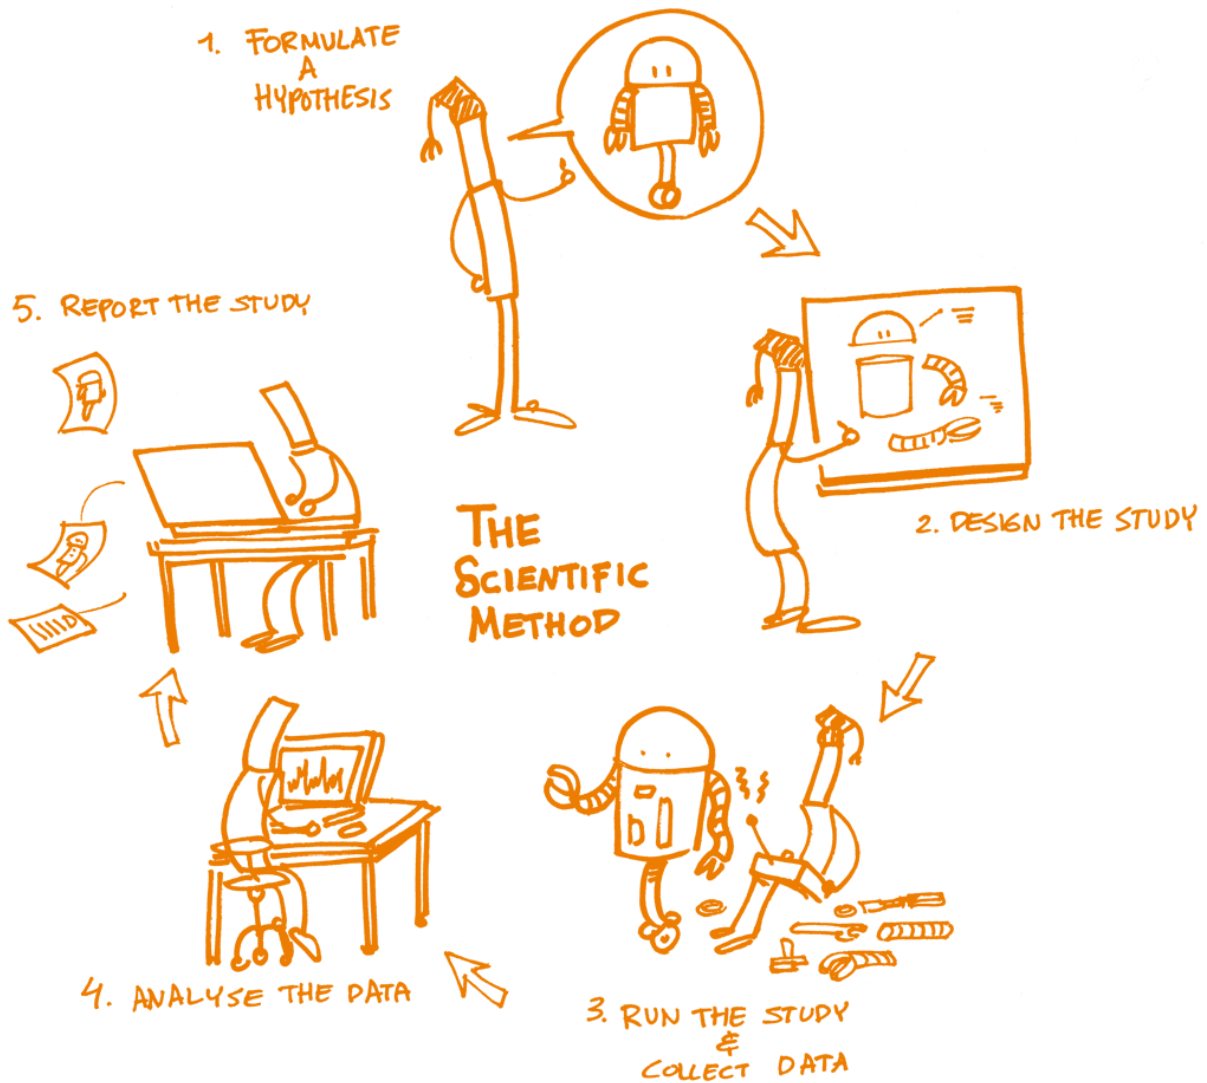 1. FORMULATE
A
HYPOTHESIS
2. DESIGN THE STUDY
3. RUN THE STUDY
&
COLLECT DATA
4. ANALYSE THE DATA
5. REPORT THE STUDY
THE
SCIENTIFIC
METHOD